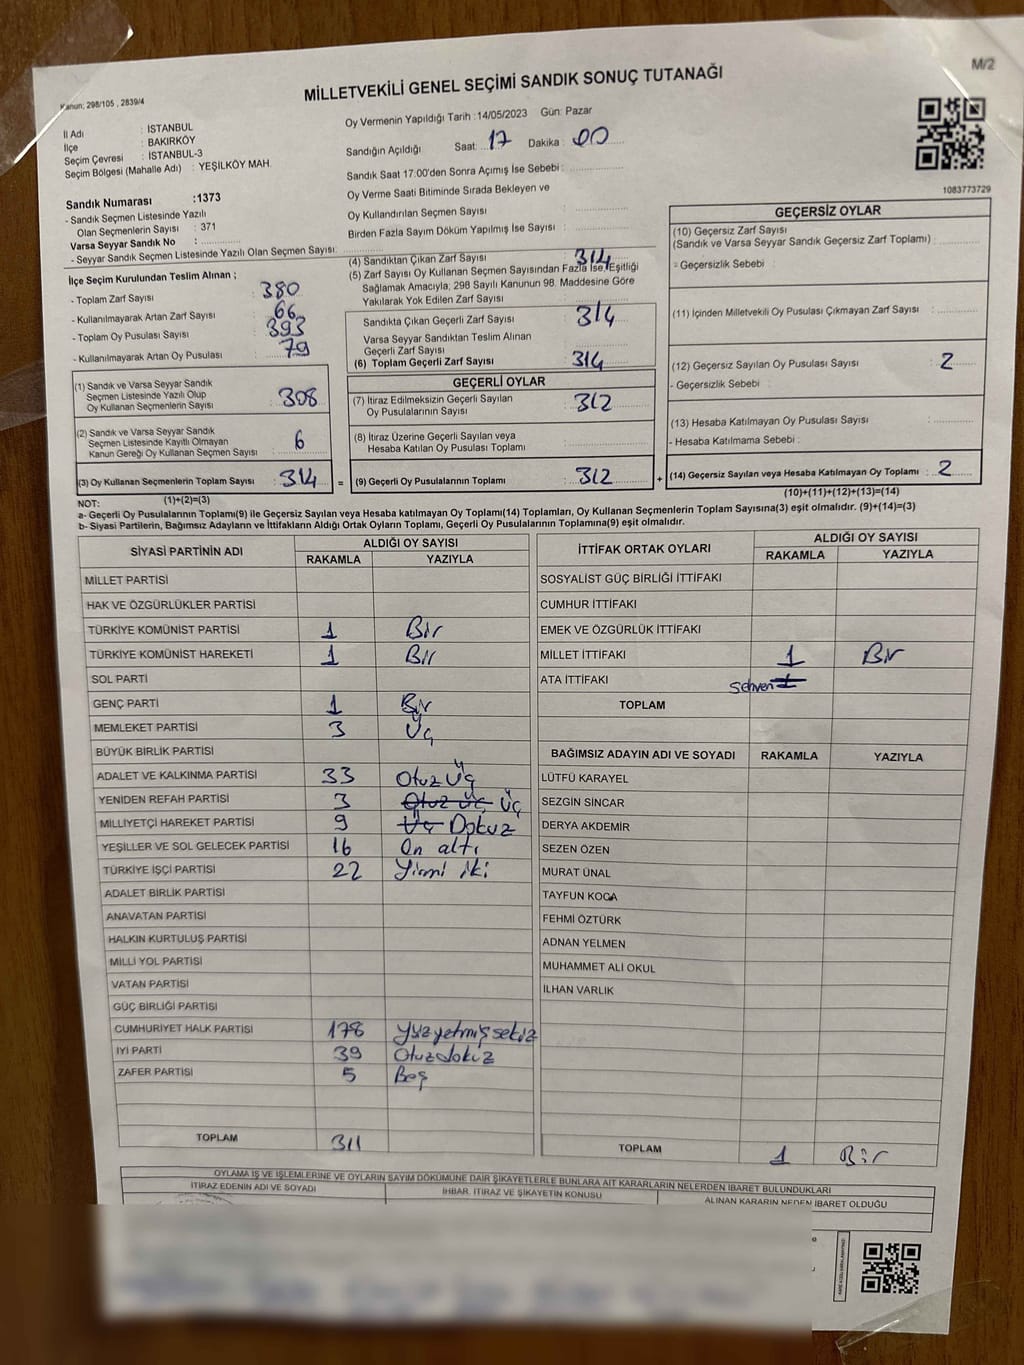 M/2
Kanun: 298/105 , 2839/4
MİLLETVEKİLİ GENEL SEÇİMİ SANDIK SONUÇ TUTANAĞI
İl Adı : İSTANBUL
İlçe : BAKIRKÖY
Seçim Çevresi : İSTANBUL-3
Seçim Bölgesi (Mahalle Adı) : YEŞİLKÖY MAH.
Oy Vermenin Yapıldığı Tarih :14/05/2023 Gün: Pazar
Sandığın Açıldığı Saat: 17 Dakika: 00
Sandık Saat 17.00'den Sonra Açımış İse Sebebi :
Oy Verme Saati Bitiminde Sırada Bekleyen ve
Oy Kullandırılan Seçmen Sayısı :
Birden Fazla Sayım Döküm Yapılmış İse Sayısı :
1083773729
Sandık Numarası :1373
- Sandık Seçmen Listesinde Yazılı
Olan Seçmenlerin Sayısı : 371
Varsa Seyyar Sandık No :
- Seyyar Sandık Seçmen Listesinde Yazılı Olan Seçmen Sayısı:
İlçe Seçim Kurulundan Teslim Alınan ;
- Toplam Zarf Sayısı : 380
- Kullanılmayarak Artan Zarf Sayısı : 66
- Toplam Oy Pusulası Sayısı : 393
- Kullanılmayarak Artan Oy Pusulası : 79
(1) Sandık ve Varsa Seyyar Sandık
Seçmen Listesinde Yazılı Olup
Oy Kullanan Seçmenlerin Sayısı : 308
(2) Sandık ve Varsa Seyyar Sandık
Seçmen Listesinde Kayıtlı Olmayan
Kanun Gereği Oy Kullanan Seçmen Sayısı : 6
(3) Oy Kullanan Seçmenlerin Toplam Sayısı : 314 =
(1)+(2)=(3)
(4) Sandıktan Çıkan Zarf Sayısı : 314
(5) Zarf Sayısı Oy Kullanan Seçmen Sayısından Fazla İse, Eşitliği
Sağlamak Amacıyla; 298 Sayılı Kanunun 98. Maddesine Göre
Yakılarak Yok Edilen Zarf Sayısı :
Sandıkta Çıkan Geçerli Zarf Sayısı : 314
Varsa Seyyar Sandıktan Teslim Alınan
Geçerli Zarf Sayısı :
(6) Toplam Geçerli Zarf Sayısı : 314
GEÇERLİ OYLAR
(7) İtiraz Edilmeksizin Geçerli Sayılan
Oy Pusulalarının Sayısı : 312
(8) İtiraz Üzerine Geçerli Sayılan veya
Hesaba Katılan Oy Pusulası Toplamı :
(9) Geçerli Oy Pusulalarının Toplamı : 312 +
GEÇERSİZ OYLAR
(10) Geçersiz Zarf Sayısı
(Sandık ve Varsa Seyyar Sandık Geçersiz Zarf Toplamı) :
- Geçersizlik Sebebi :
(11) İçinden Milletvekili Oy Pusulası Çıkmayan Zarf Sayısı :
(12) Geçersiz Sayılan Oy Pusulası Sayısı : 2
- Geçersizlik Sebebi :
(13) Hesaba Katılmayan Oy Pusulası Sayısı :
- Hesaba Katılmama Sebebi :
(14) Geçersiz Sayılan veya Hesaba Katılmayan Oy Toplamı : 2
(10)+(11)+(12)+(13)=(14)
NOT:
a- Geçerli Oy Pusulalarının Toplamı(9) ile Geçersiz Sayılan veya Hesaba katılmayan Oy Toplamı(14) Toplamları, Oy Kullanan Seçmenlerin Toplam Sayısına(3) eşit olmalıdır. (9)+(14)=(3)
b- Siyasi Partilerin, Bağımsız Adayların ve İttifakların Aldığı Ortak Oyların Toplamı, Geçerli Oy Pusulalarının Toplamına(9) eşit olmalıdır.
SİYASİ PARTİNİN ADI ALDIĞI OY SAYISI
RAKAMLA YAZIYLA
MİLLET PARTİSİ
HAK VE ÖZGÜRLÜKLER PARTİSİ
TÜRKİYE KOMÜNİST PARTİSİ 1 Bir
TÜRKİYE KOMÜNİST HAREKETİ 1 Bir
SOL PARTİ
GENÇ PARTİ 1 Bir
MEMLEKET PARTİSİ 3 Üç
BÜYÜK BİRLİK PARTİSİ
ADALET VE KALKINMA PARTİSİ 33 Otuz Üç
YENİDEN REFAH PARTİSİ 3 Otuz Üç Üç
MİLLİYETÇİ HAREKET PARTİSİ 9 Üç Dokuz
YEŞİLLER VE SOL GELECEK PARTİSİ 16 On altı
TÜRKİYE İŞÇİ PARTİSİ 22 Yirmi iki
ADALET BİRLİK PARTİSİ
ANAVATAN PARTİSİ
HALKIN KURTULUŞ PARTİSİ
MİLLİ YOL PARTİSİ
VATAN PARTİSİ
GÜÇ BİRLİĞİ PARTİSİ
CUMHURİYET HALK PARTİSİ 178 Yüzyetmişsekiz
İYİ PARTİ 39 Otuzdokuz
ZAFER PARTİSİ 5 Beş
TOPLAM 311
İTTİFAK ORTAK OYLARI ALDIĞI OY SAYISI
RAKAMLA YAZIYLA
SOSYALİST GÜÇ BİRLİĞİ İTTİFAKI
CUMHUR İTTİFAKI
EMEK VE ÖZGÜRLÜK İTTİFAKI
MİLLET İTTİFAKI 1 Bir
ATA İTTİFAKI sehven 1
TOPLAM
BAĞIMSIZ ADAYIN ADI VE SOYADI RAKAMLA YAZIYLA
LÜTFÜ KARAYEL
SEZGİN SİNCAR
DERYA AKDEMİR
SEZEN ÖZEN
MURAT ÜNAL
TAYFUN KOCA
FEHMİ ÖZTÜRK
ADNAN YELMEN
MUHAMMET ALİ OKUL
İLHAN VARLIK
TOPLAM 1 Bir
OYLAMA İŞ VE İŞLEMLERİNE VE OYLARIN SAYIM DÖKÜMÜNE DAİR ŞİKAYETLERLE BUNLARA AİT KARARLARIN NELERDEN İBARET BULUNDUKLARI
İTİRAZ EDENİN ADI VE SOYADI İHBAR, İTİRAZ VE ŞİKAYETİN KONUSU ALINAN KARARIN NEDEN İBARET OLDUĞU